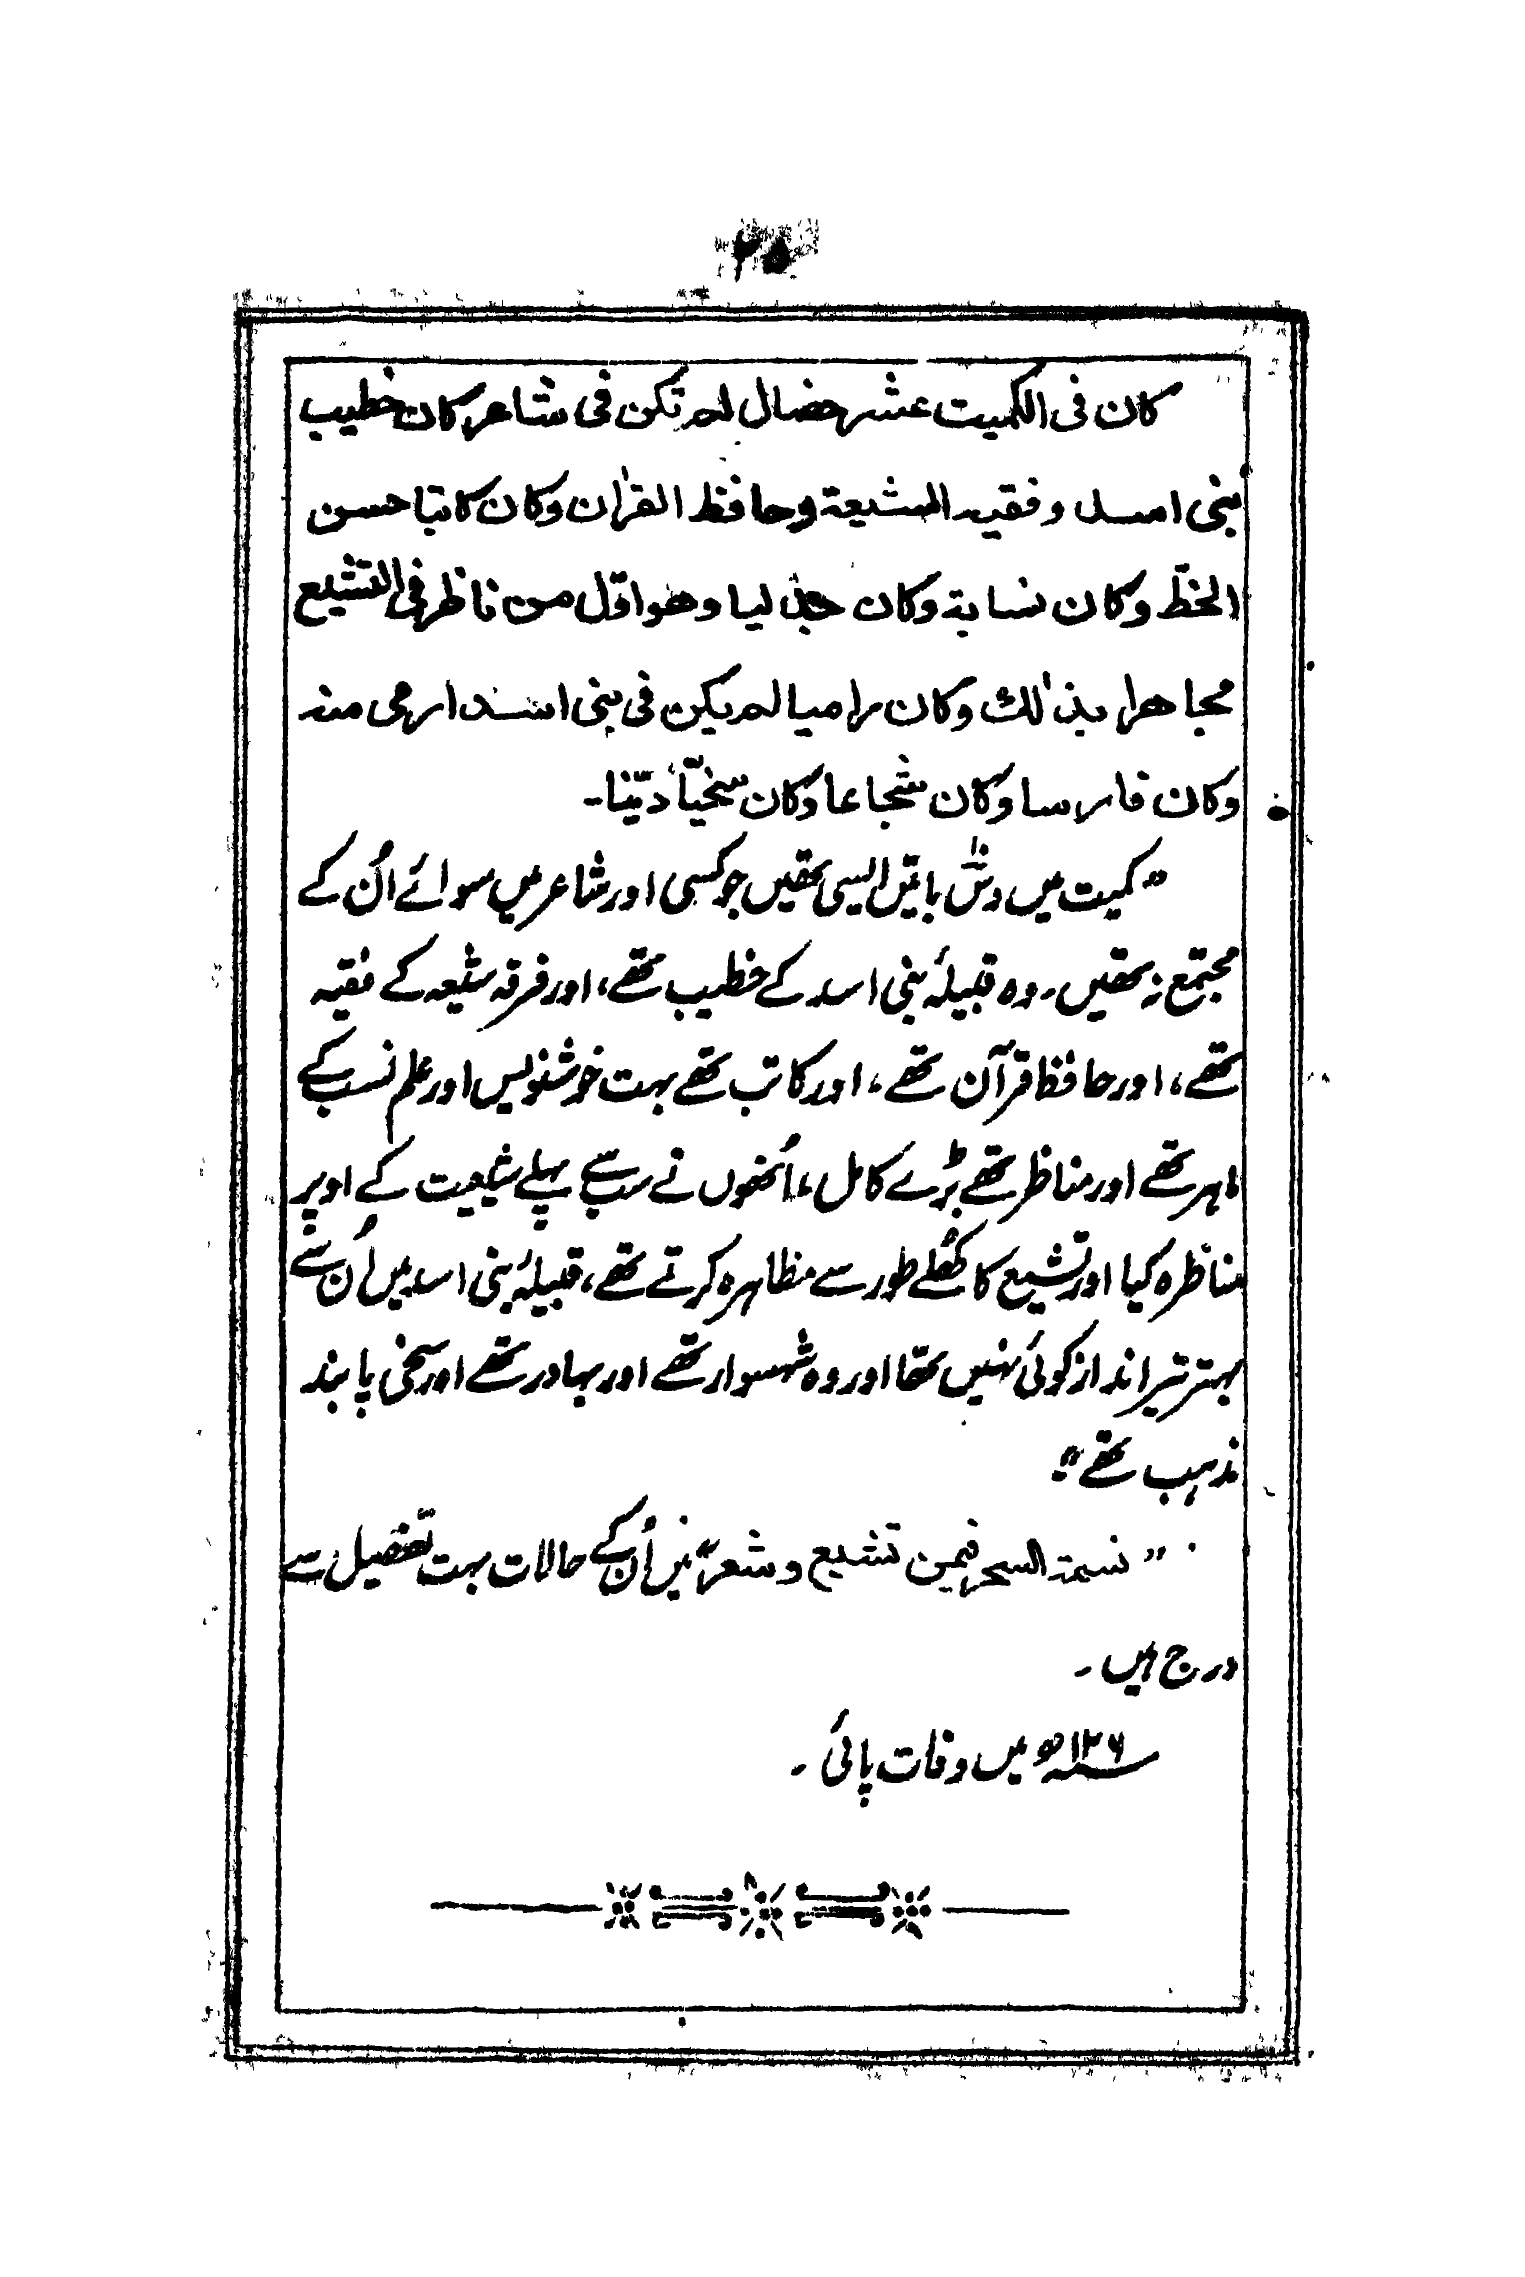 ۲۵
کان فی الکمیت عشر خصال لم تکن فی شاعر کان خطیب
بنی اسد وفقیہ الشیعۃ وحافظ القرٰان وکان کاتبا حسن
الخطّ وکان نسابۃ وکان جدلیا وھو اوّل من ناظر فی التشیع
مجاھرا بذٰلک وکان رامیا لم یکن فی بنی اسد ارمی منہ
وکان فارسا وکان شجاعا وکان سخیّا دیّنا۔
”کمیت میں دسؔ باتیں ایسی تھیں جو کسی اور شاعر میں سوائے اُن کے
مجتمع نہ تھیں۔ وہ قبیلۂ بنی اسد کے خطیب تھے، اور فرقہ شیعہ کے فقیہ
تھے، اور حافظ قرآن تھے، اور کاتب تھے بہت خوشنویس اور علم نسب کے
ماہر تھے اور مناظر تھے بڑے کامل، اُنھوں نے سب سے پہلے شیعیت کے اوپر
مناظرہ کیا اور تشیع کا کُھلے طور سے مظاہرہ کرتے تھے، قبیلۂ بنی اسد میں اُن سے
بہتر تیر انداز کوئی نہیں تھا اور وہ شہسوار تھے اور بہادر تھے اور سخی پابند
مذہب تھے“۔
”نسمۃ السحر فیمن تشیع وشعر“ میں اُن کے حالات بہت تفصیل سے
درج ہیں۔
سنہ ۱۲۶ھ میں وفات پائی۔